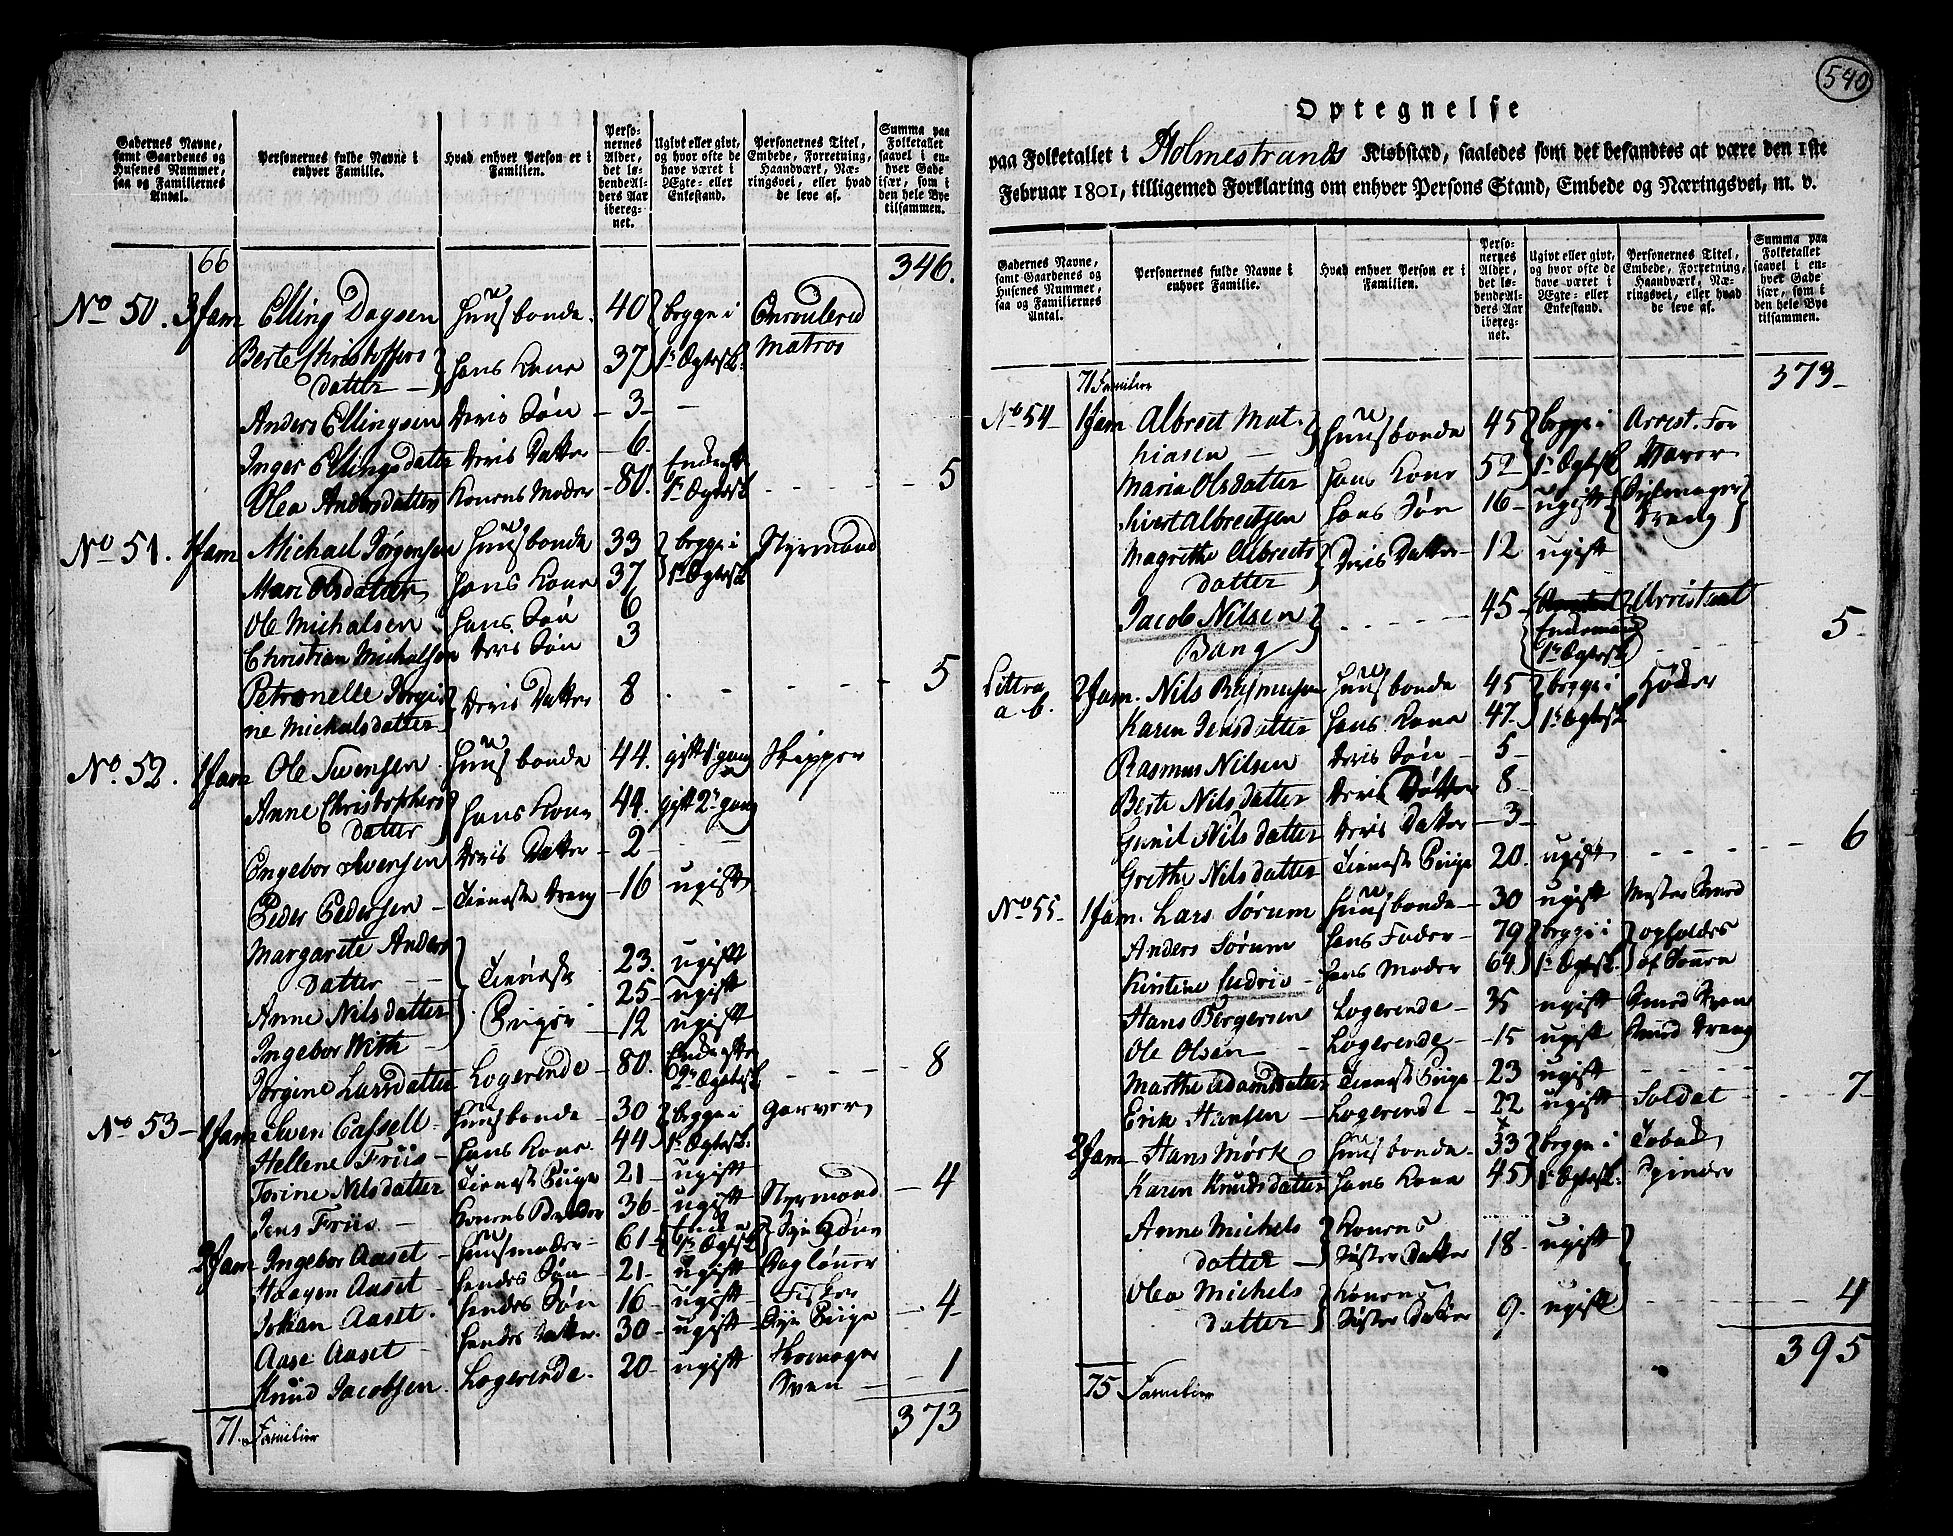 Gadernes Navne, samt Gaardenes og Husenes Nummer, saa og Familiernes Antal.
Personernes fulde Navne i enhver Familie.
Hvad enhver Person er i Familien.
Personernes Alder, det løbende Alders Aar iberegnet.
Ugivt eller givt, og hvor ofte de have været i Ægte- eller Enkestand.
Personernes Titel, Embede, Forretning, Haandværk, Næringsvei, eller hvad de leve af.
Summa paa Folketallet saavel i enhver Gade især, som i den hele Bye tilsammen.
66 346.
No 50. 3 fam Elling Dagsen Huusbonde 40 begge i Enroulerd
Berte Christoffers datter hans Kone 37 1te Ægtesk. Matros
Anders Ellingsen deris Søn 3
Inger Ellingsdatter deris Datter 6
Olea Andersdatter Konens Moder 80. Enke efter 1te Ægtesk 5
No 51. 1 fam Michael Jørgensen Huusbonde 33 begge i Styrmand
Mari Olsdatter hans Kone 37 1te Ægtesk
Ole Michalsen hans Søn 6
Christian Michalsen deris Søn 3
Petronelle Jørgine Michalsdatter deris Datter 8 5
No. 52. 1 fam Ole Swensen Huusbonde 44. gift 1 gang Skipper
Anne Christophers datter hans Kone 44. gift 2de gang
Engebor Swensen deris Datter 2
Peder Pedersen Tieneste Dreng 16 ugift
Margarete Anders datter 23. ugift
Anne Nilsdatter Tieneste Piiger 25 ugift
Ingebor With 12 ugift
Jørgine Larsdatter Logerende 80. Enke efter 2de Ægtesk 8
No 53 1 fam Swen Cassell Huusbonde 30 begge i Garver
Hellene Friis hans Kone 44 1te Ægtesk.
Torine Nilsdatter Tieneste Piige 21 ugift
Jens Friis Konens Broder 36 ugift Styrmand 4
2 fam Ingebor Aaset Huusmoder 61 Enke 1te Ægtesk Sye Kone
Haagen Aaset hendes Søn 21 ugift Dagløner
Johan Aaset. hendes Søn 16 ugift Fisker
Aase Aaset hendes Datter. 30 ugift Sye Piige 4
Knud Jacobsen Logerende. 20 ugift Skomager Sven 1
71. Familier 373
540
Optegnelse
paa Folketallet i Holmestrands Kiøbstæd, saaledes som det befandtes at være den 1ste
Februar 1801, tilligemed Forklaring om enhver Persons Stand, Embede og Næringsvei, m. v.
Gadernes Navne, samt Gaardenes og Husenes Nummer, saa og Familiernes Antal.
Personernes fulde Navne i enhver Familie.
Hvad enhver Person er i Familien.
Personernes Alder, det løbende Alders Aar iberegnet.
Ugivt eller givt, og hvor ofte de have været i Ægte- eller Enkestand.
Personernes Titel, Embede, Forretning, Haandværk, Næringsvei, eller hvad de leve af.
Summa paa Folketallet saavel i enhver Gade især, som i den hele Bye tilsammen.
71 Familier 373
No 54 1 fam Albreet Mathiasen Huusbonde 45 begge i Arrest. For
Maria Olsdatter hans Kone 52 1te Ægtesk Varer
Albreetsen hans Søn 16 ugift Dreng
Magrethe Albreets datter deris Datter 12 ugift
Jacob Nilsen Bang 45 Enkemand 1te Ægtesk Arristent 5
Littra a-b. 2 fam. Nils Rasmusen Huusbonde 45 begge i Høker
Karen Jensdatter hans Kone 47 1te Ægtesk
Rasmus Nilsen deris Søn 5
Berte Nilsdatter deris Døtter 8
Gunil Nilsdatter deris Datter 3
Grethe Nilsdatter Tieneste Piige 20. ugift 6
No 55 1 fam. Lars Sørum Huusbonde 30 ugift Mester Smed
Anders Sørum hans Fader 79 begge i opholdes
Kirstine hans Moder 64 1te Ægtesk. af Sønen
Hans Børgersen Logerende 35 ugift Smed Sven
Ole Olsen Logerende 15 ugift Smed Dreng
Marthe Adamsdatter Tieneste Piige 23 ugift
Erik Hansen Logerende 22 ugift Soldat 7
2 fam Hans Mørk Huusbonde 33 begge i Tobak
Karen Knudsdatter hans Kone 45 1te Ægtesk. Spinder
Anne Michels datter Konens Søster Datter 18 ugift
Olea Michels datter Konens Søster Datter 9. ugift 4
75 Familier 395